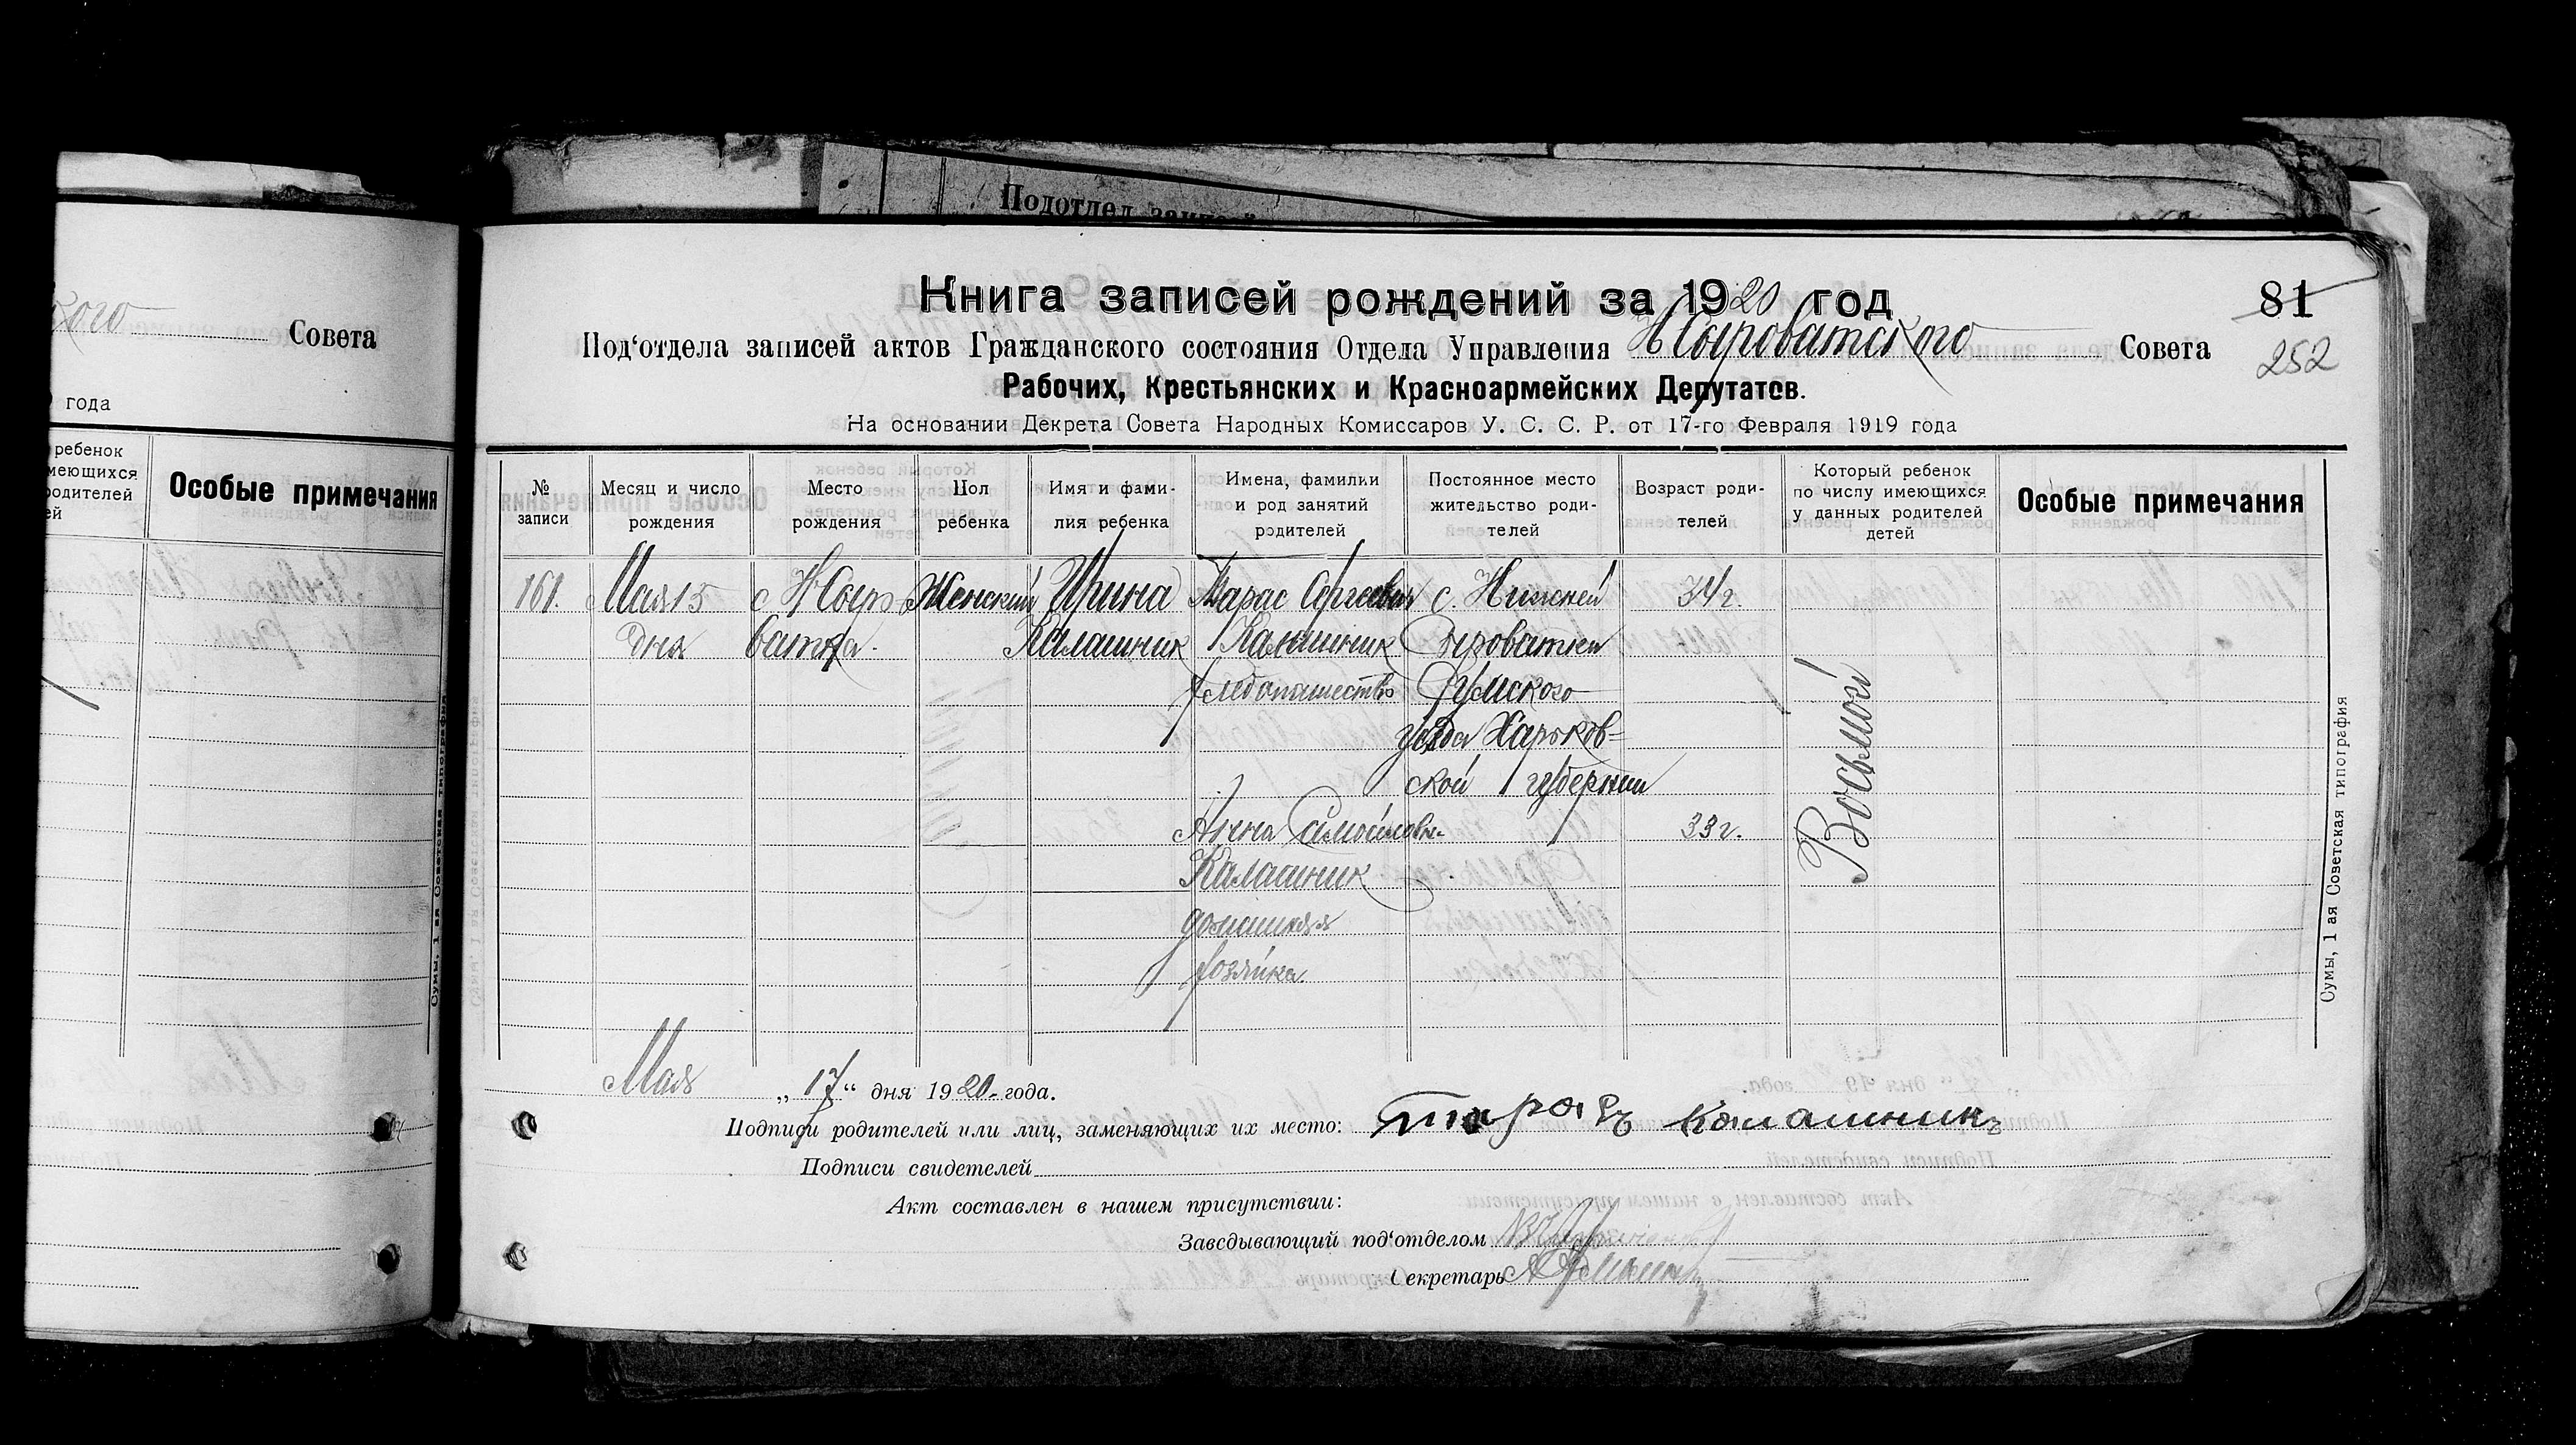 Подотдел
кого Совета
года
ребенок
имеющихся
родителей
ей
Особые примечания
Сумы, 1 ая Советская типография
Книга записей рождений за 1920 год
81
Под‘отдела записей актов Гражданского состояния Отдела Управления Н Сыроватского Совета
252
Рабочих, Крестьянских и Красноармейских Депутатов.
На основании Декрета Совета Народных Комиссаров У. С. С. Р. от 17-го Февраля 1919 года
№ записи
Месяц и число рождения
Место рождения
Пол ребенка
Имя и фами-лия ребенка
Имена, фамилии и род занятий родителей
Постоянное место жительство роди-телей
Возраст роди-телей
Который ребенок по числу имеющихся у данных родителей детей
Особые примечания
161. Мая 15 с Н Сыро Женский Ирина Тарас Сергеевич с. Нижней 34 г.
дня ватка. Калашник Калашник Сыроватки
хлебопашество Сумского
уезда Харьков=
ской губернии
Восьмой
Анна Самойловн. 33 г.
Калашник
домашняя
хозяйка.
Сумы, 1 ая Советская типография
Мая „17“ дня 1920 года.
Подписи родителей или лиц, заменяющих их место: Тарасъ Калашникъ
Подписи свидетелей
Акт составлен в нашем присутствии:
Заведывающий под‘отделом
Секретарь